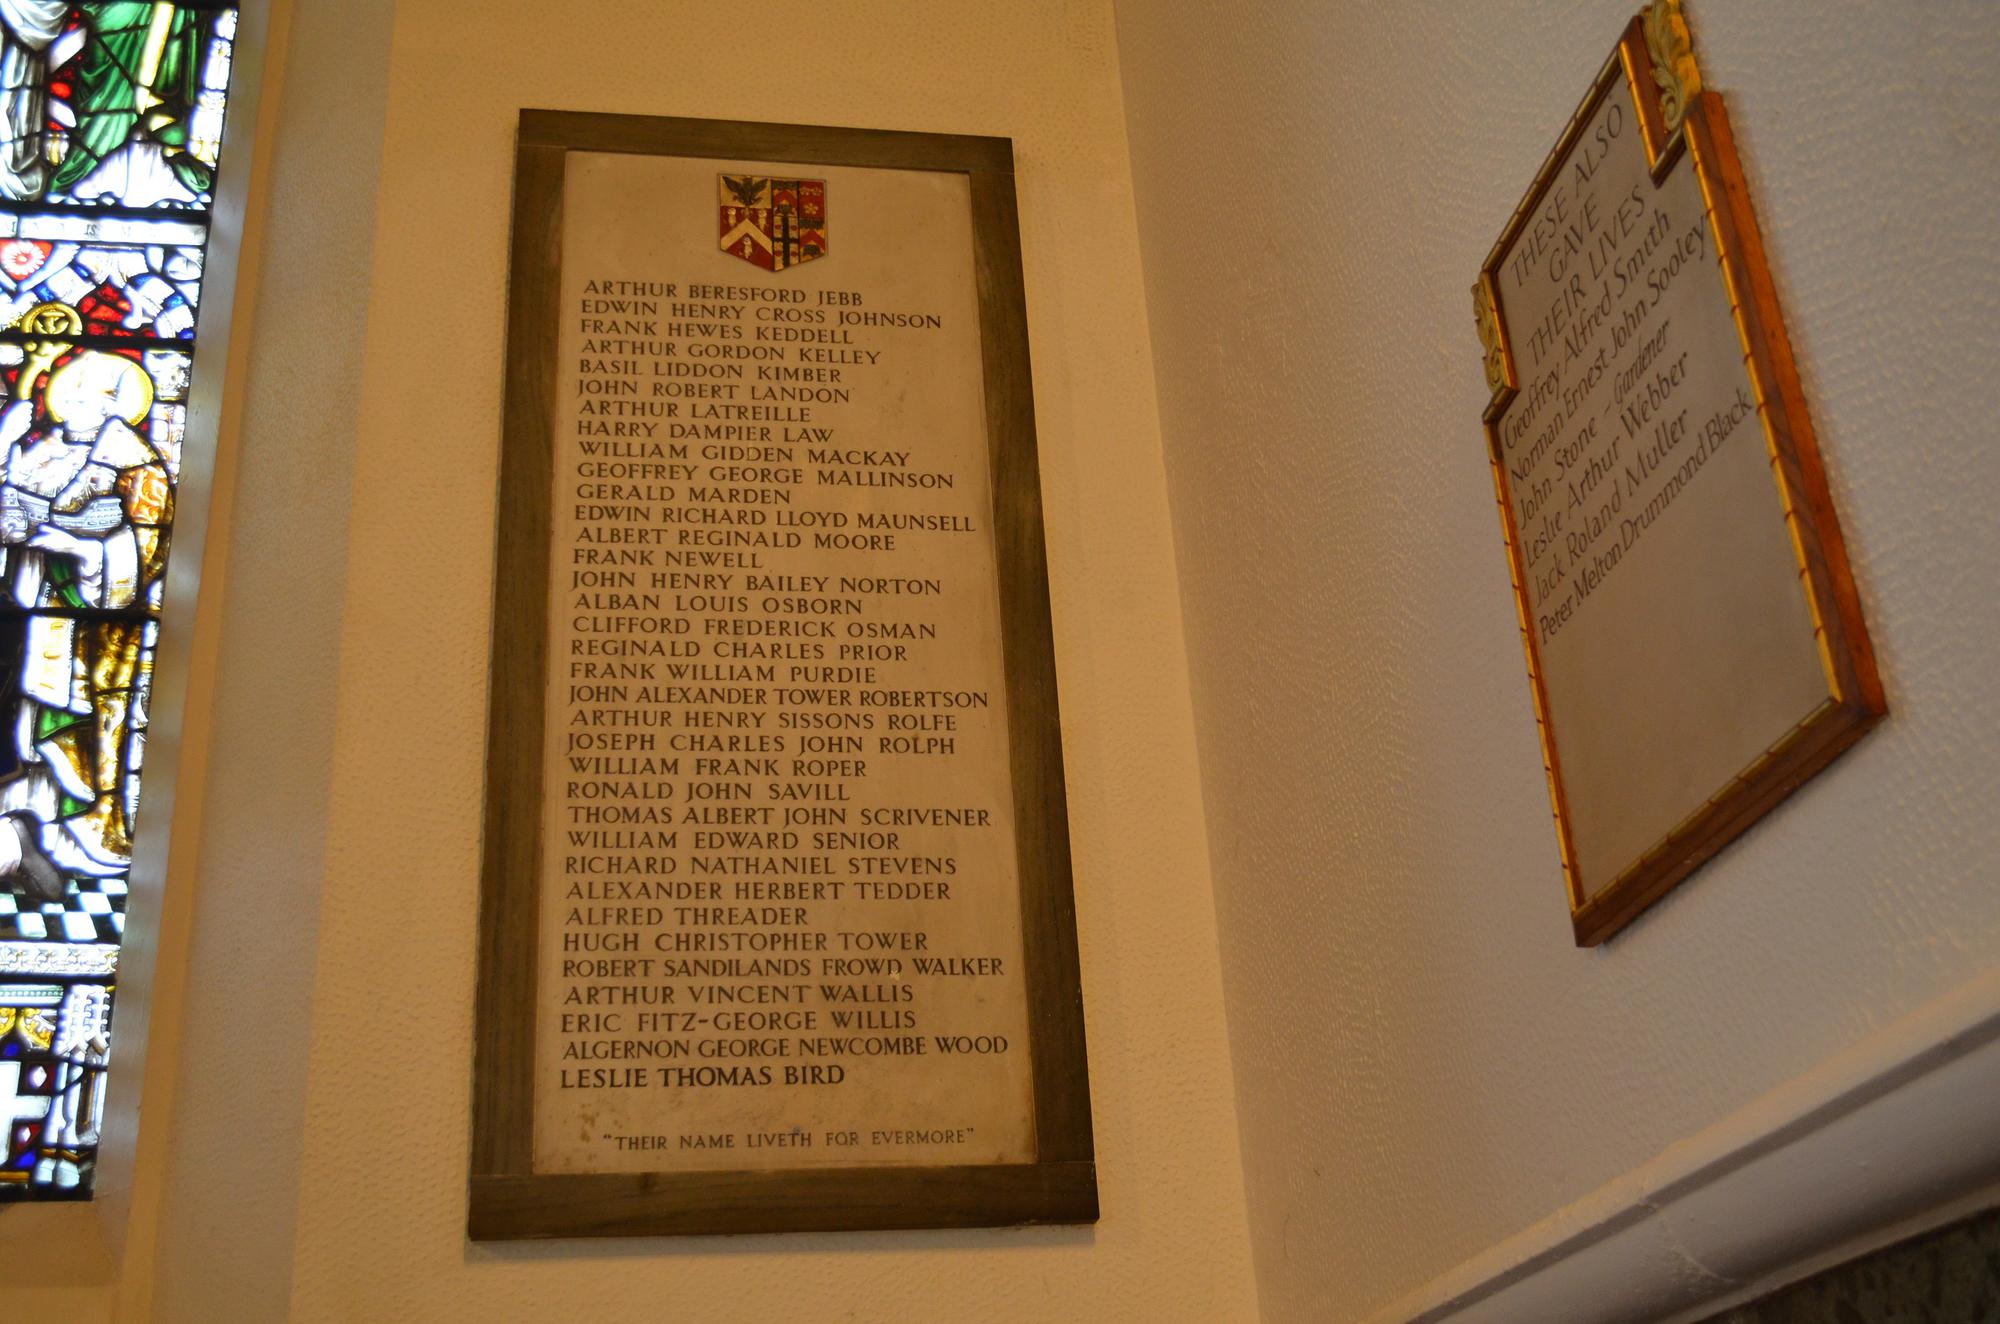 ARTHUR BERESFORD JEBB
EDWIN HENRY CROSS JOHNSON
FRANK HEWES KEDDELL
ARTHUR GORDON KELLEY
BASIL LIDDON KIMBER
JOHN ROBERT LANDON
ARTHUR LATREILLE
HARRY DAMPIER LAW
WILLIAM GIDDEN MACKAY
GEOFFREY GEORGE MALLINSON
GERALD MARDEN
EDWIN RICHARD LLOYD MAUNSELL
ALBERT REGINALD MOORE
FRANK NEWELL
JOHN HENRY BAILEY NORTON
ALBAN LOUIS OSBORN
CLIFFORD FREDERICK OSMAN
REGINALD CHARLES PRIOR
FRANK WILLIAM PURDIE
JOHN ALEXANDER TOWER ROBERTSON
ARTHUR HENRY SISSONS ROLFE
JOSEPH CHARLES JOHN ROLPH
WILLIAM FRANK ROPER
RONALD JOHN SAVILL
THOMAS ALBERT JOHN SCRIVENER
WILLIAM EDWARD SENIOR
RICHARD NATHANIEL STEVENS
ALEXANDER HERBERT TEDDER
ALFRED THREADER
HUGH CHRISTOPHER TOWER
ROBERT SANDILANDS FROWD WALKER
ARTHUR VINCENT WALLIS
ERIC FITZ-GEORGE WILLIS
ALGERNON GEORGE NEWCOMBE WOOD
LESLIE THOMAS BIRD
"THEIR NAME LIVETH FOR EVERMORE"
THESE ALSO
GAVE
THEIR LIVES
Geoffrey Alfred Smith
Norman Ernest John Sooley
John Stone - Gardener
Leslie Arthur Webber
Jack Roland Muller
Peter Melton Drummond Black